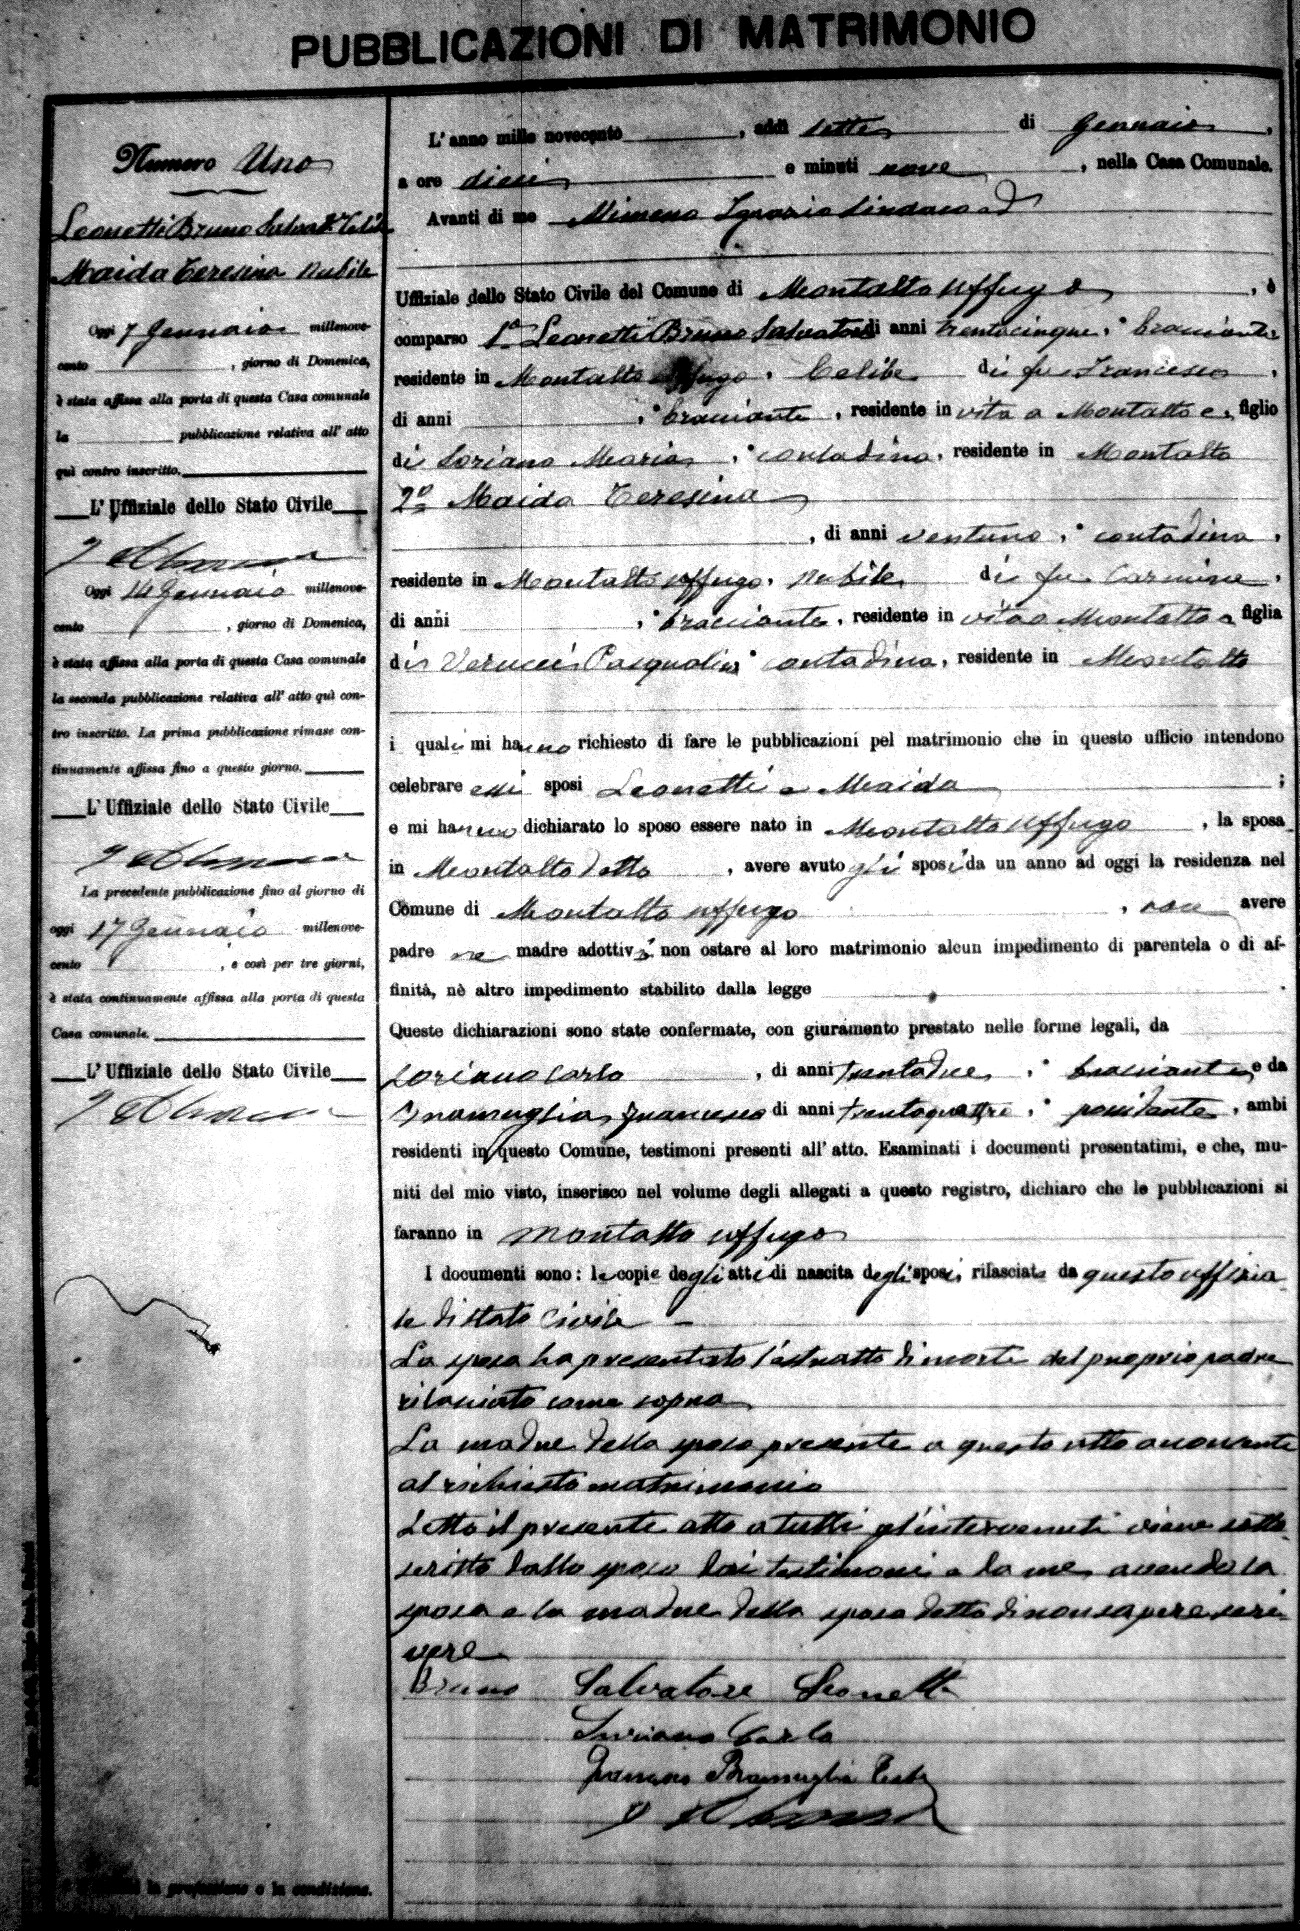 PUBBLICAZIONI DI MATRIMONIO
Numero Uno
Leonetti Bruno Salvat.e Celibe
Maida Teresina nubile
Oggi 7 Gennaio millenove-
cento , giorno di Domenica,
è stata affissa alla porta di questa Casa comunale
la pubblicazione relativa all' atto
quì contro inscritto.
L' Uffiziale dello Stato Civile
Oggi 14 Gennaio millenove-
cento , giorno di Domenica,
è stata affissa alla porta di questa Casa comunale
la seconda pubblicazione relativa all' atto quì con-
tro inscritto. La prima pubblicazione rimase con-
tinuamente affissa fino a questo giorno.
L' Uffiziale dello Stato Civile
La precedente pubblicazione fino al giorno di
oggi 17 Gennaio millenove-
cento , e così per tre giorni,
è stata continuamente affissa alla porta di questa
Casa comunale.
L' Uffiziale dello Stato Civile
la professione o la condizione.
L' anno mille novecento , addì sette di Gennaio ,
a ore dieci e minuti nove , nella Casa Comunale.
Avanti di me Mimena Ignazio Sindaco ed
Uffiziale dello Stato Civile del Comune di Montalto Uffugo , è
comparso 1° Leonetti Bruno Salvatore di anni trentacinque , bracciante
residente in Montalto Uffugo , Celibe di fu Francesco ,
di anni , bracciante , residente in vita a Montalto e , figlio
di Soriano Maria , contadina , residente in Montalto
2° Maida Teresina
, di anni ventuno , contadina ,
residente in Montalto Uffugo , nubile di fu Carmine ,
di anni , bracciante , residente in vita a Montalto e figlia
di Pasqualina contadina , residente in Montalto
i quali mi hanno richiesto di fare le pubblicazioni pel matrimonio che in questo ufficio intendono
celebrare essi sposi Leonetti e Maida ;
e mi hanno dichiarato lo sposo essere nato in Montalto Uffugo , la sposa
in Montalto detto , avere avuto gli sposi da un anno ad oggi la residenza nel
Comune di Montalto Uffugo , non avere
padre ne madre adottivi non ostare al loro matrimonio alcun impedimento di parentela o di af-
finità, nè altro impedimento stabilito dalla legge .
Queste dichiarazioni sono state confermate, con giuramento prestato nelle forme legali, da
Soriano Carlo , di anni trentadue , bracciante e da
Bramuglia Francesco di anni trentaquattro , possidente , ambi
residenti in questo Comune, testimoni presenti all' atto. Esaminati i documenti presentatimi, e che, mu-
niti del mio visto, inserisco nel volume degli allegati a questo registro, dichiaro che le pubblicazioni si
faranno in Montalto Uffugo
I documenti sono: le copie degli atti di nascita degli sposi, rilasciate da questo uffizia
le di stato civile
La sposa ha presentato l'estratto di morte del proprio padre
rilasciato come sopra
La madre della sposa presente a questo atto acconsente
al richiesto matrimonio
Letto il presente atto a tutti gl'intervenuti viene sotto
scritto dallo sposo dai testimoni e da me, avendo la
sposa e la madre della sposa detto di non sapere scri-
vere
Bruno Salvatore Leonetti
Soriano Carlo
Francesco Bramuglia Teste